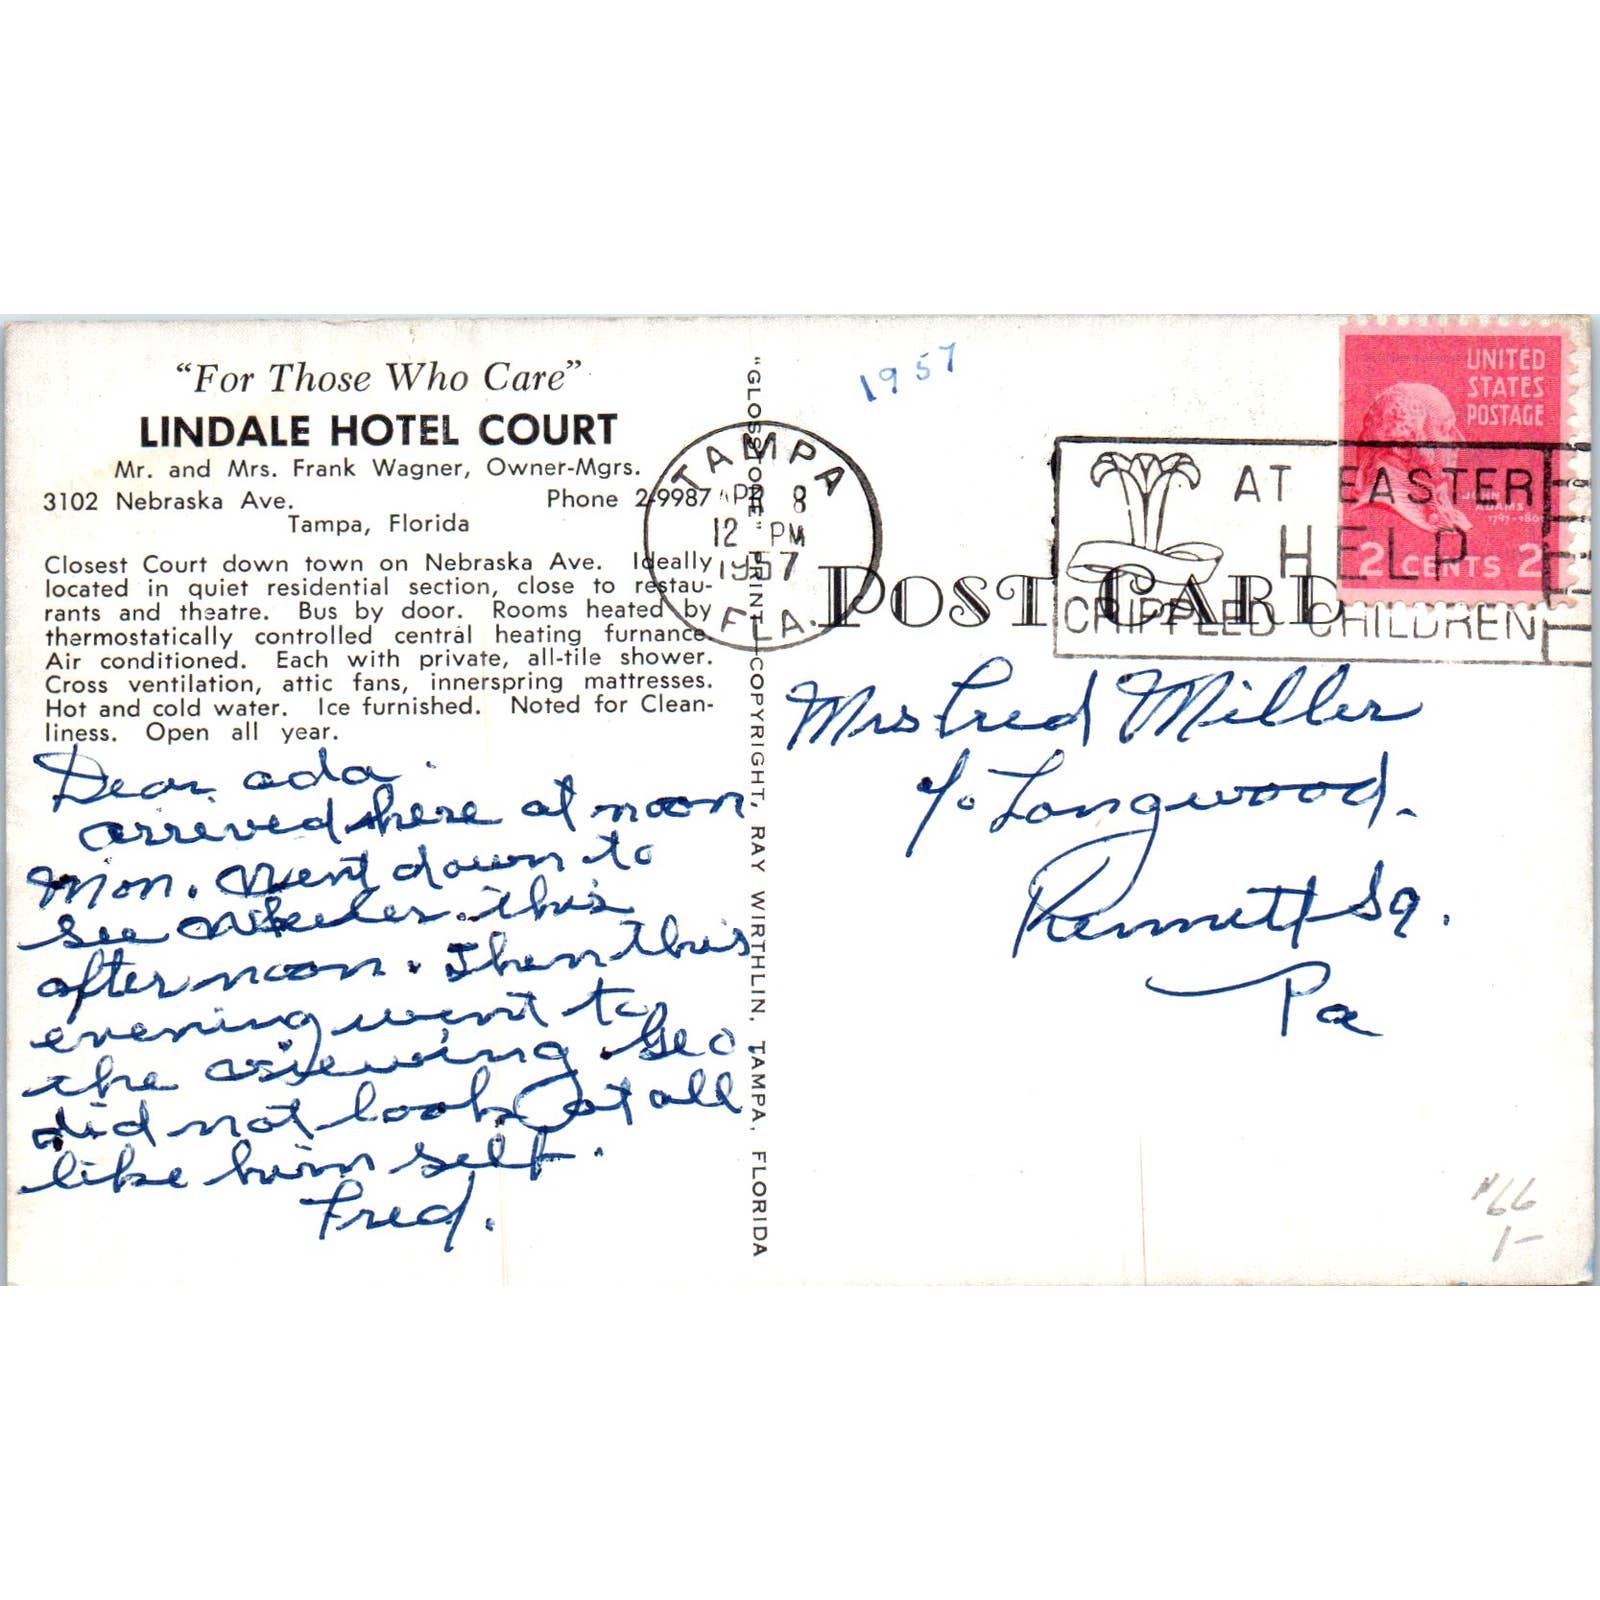 "For Those Who Care"
LINDALE HOTEL COURT
Mr. and Mrs. Frank Wagner, Owner-Mgrs.
3102 Nebraska Ave. Phone 2-9987
Tampa, Florida
Closest Court down town on Nebraska Ave. Ideally
located in quiet residential section, close to restau-
rants and theatre. Bus by door. Rooms heated by
thermostatically controlled central heating furnance.
Air conditioned. Each with private, all-tile shower.
Cross ventilation, attic fans, innerspring mattresses.
Hot and cold water. Ice furnished. Noted for Clean-
liness. Open all year.
Dear ada.
arrived here at noon
Mon. Went down to
see Wheeler this
afternoon. Then this
evening went to
the viewing. Geo
did not look at all
like him self.
Fred.
"GLOSSTONE" PRINT—COPYRIGHT, RAY WIRTHLIN, TAMPA, FLORIDA
1957
TAMPA
APR 8
12 PM
1957
FLA.
AT EASTER
HELP
CRIPPLED CHILDREN
UNITED
STATES
POSTAGE
JOHN
ADAMS
2 CENTS 2
POST CARD
Mrs Fred Miller
c/o Longwood.
Kennett Sq.
Pa
#66
1-